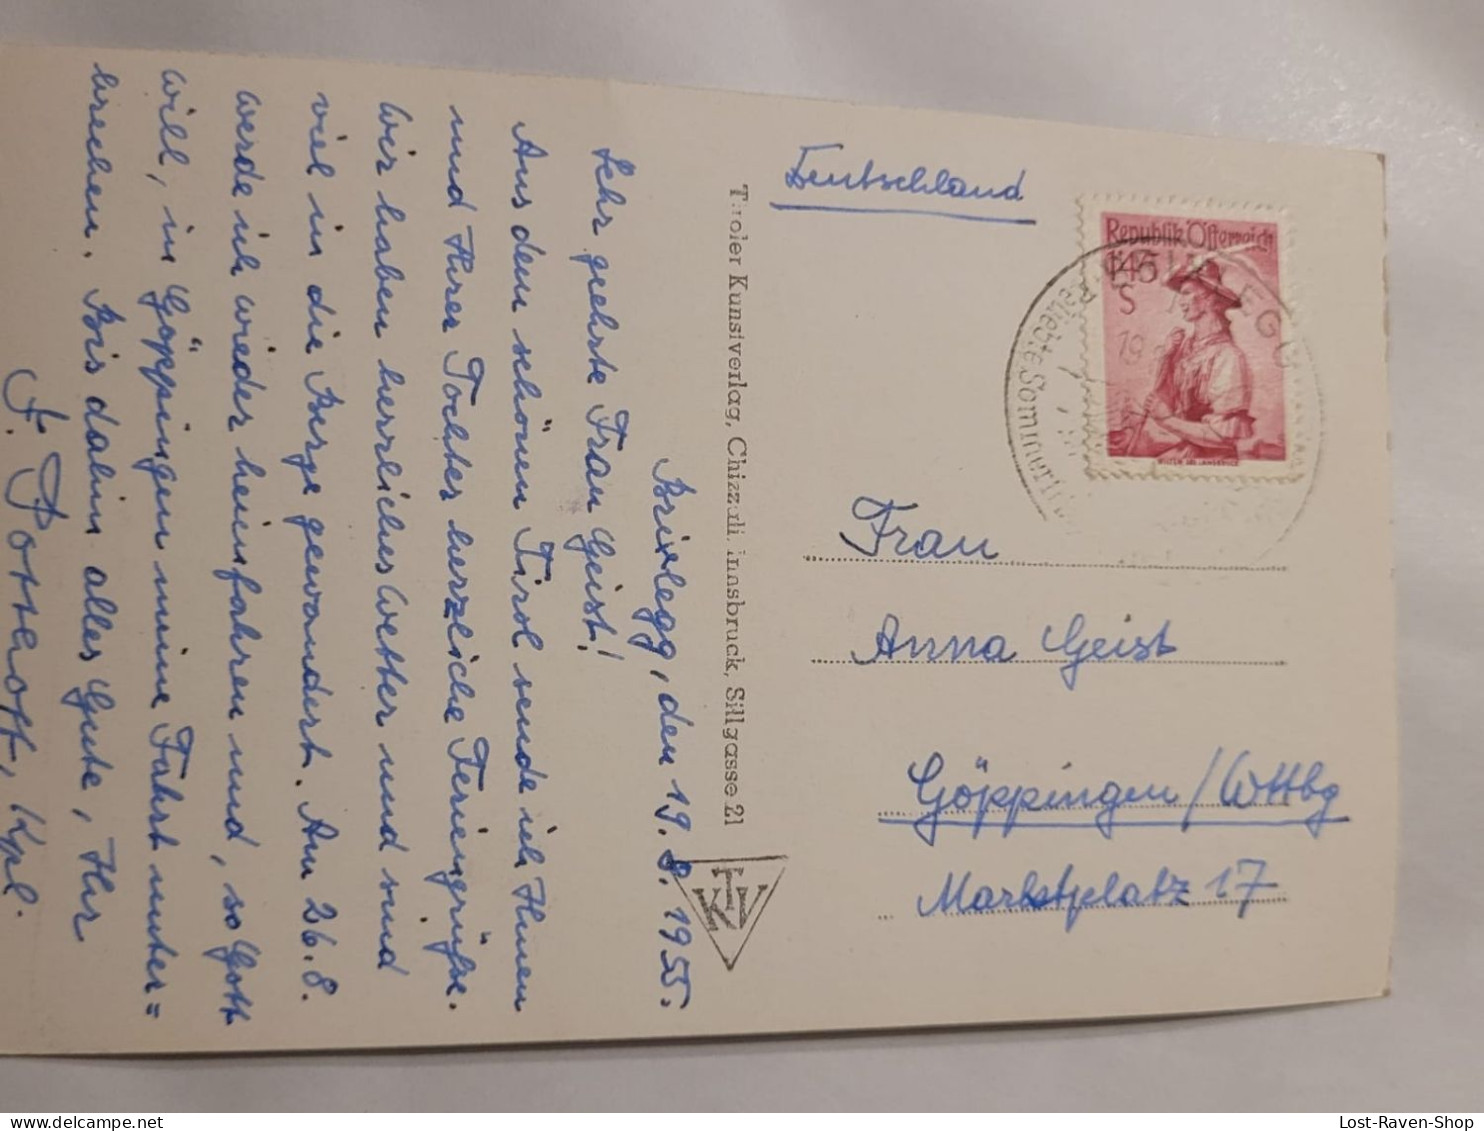 Brixlegg, den 19.8.1955.
Sehr geehrte Frau Geist!
Aus dem schönen Tirol sende ich Ihnen
und Ihrer Tochter herzliche Feriengrüße.
Wir haben herrliches Wetter und sind
viel in die Berge gewandert. Am 26.8.
werde ich wieder heimfahren und, so Gott
will, in Göppingen meine Fahrt unter=
brechen. Bis dahin alles Gute, Ihr
F. Potthoff, Kpl.
Tiroler Kunstverlag, Chizzali, Innsbruck, Sillgasse 21
KTV
Deutschland
Republik Österreich
1·45
S
BRIXLEGG
19
Frau
Anna Geist
Göppingen/Wttbg
Marktplatz 17
Lost-Raven-Shop